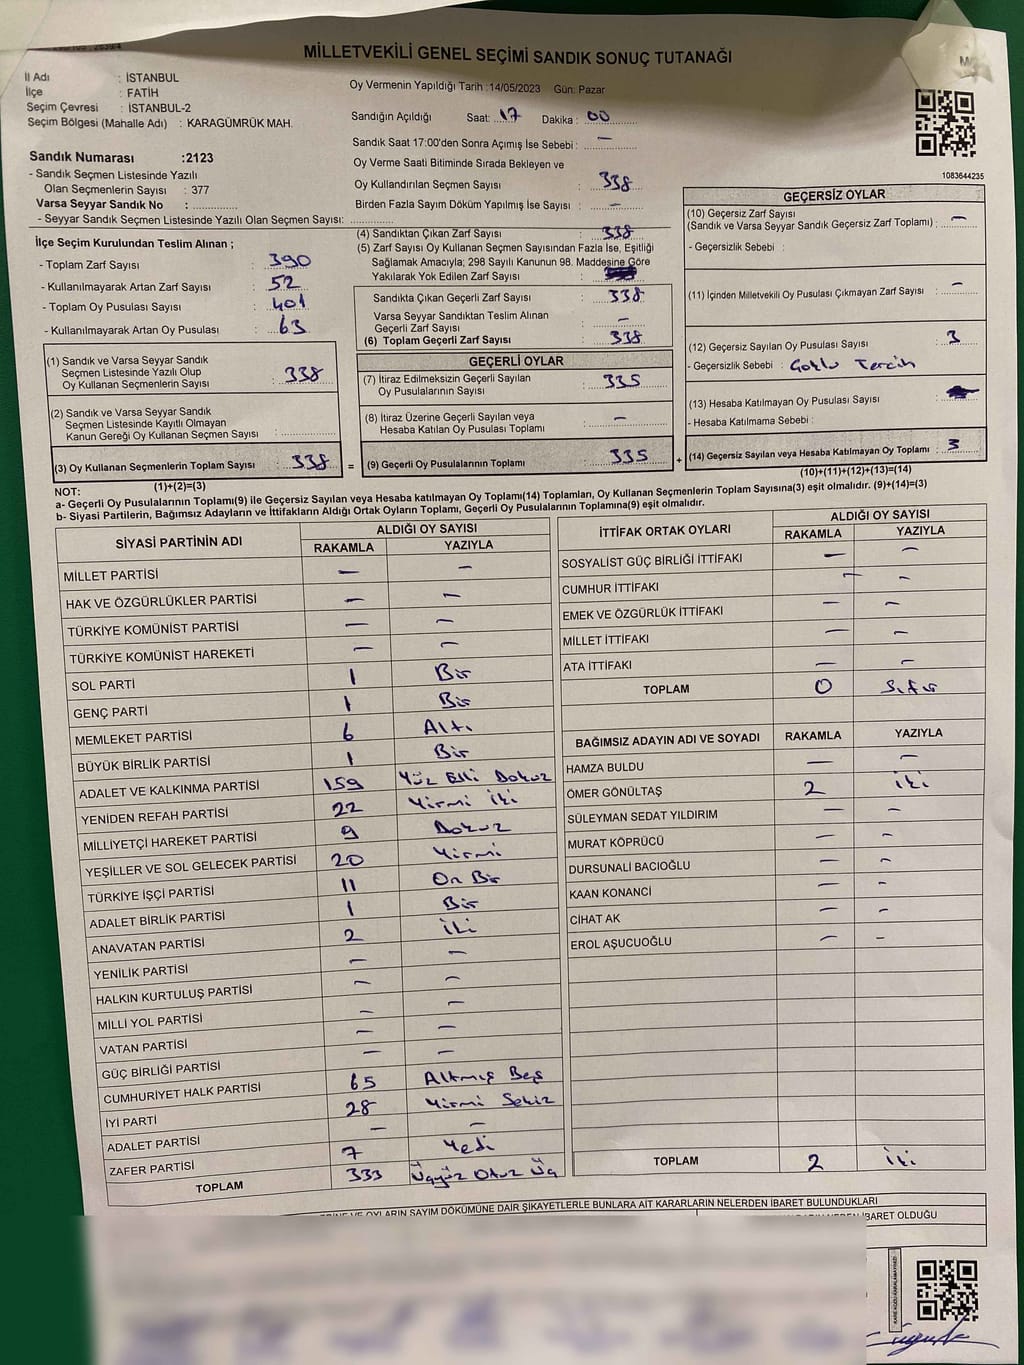 MİLLETVEKİLİ GENEL SEÇİMİ SANDIK SONUÇ TUTANAĞI
İl Adı : İSTANBUL
İlçe : FATİH
Seçim Çevresi : İSTANBUL-2
Seçim Bölgesi (Mahalle Adı) : KARAGÜMRÜK MAH.
Oy Vermenin Yapıldığı Tarih :14/05/2023 Gün: Pazar
Sandığın Açıldığı Saat: 17 Dakika : 00
Sandık Saat 17:00'den Sonra Açımış İse Sebebi : —
Oy Verme Saati Bitiminde Sırada Bekleyen ve
Oy Kullandırılan Seçmen Sayısı : 338
Birden Fazla Sayım Döküm Yapılmış İse Sayısı : —
Sandık Numarası :2123
- Sandık Seçmen Listesinde Yazılı
Olan Seçmenlerin Sayısı : 377
Varsa Seyyar Sandık No :
- Seyyar Sandık Seçmen Listesinde Yazılı Olan Seçmen Sayısı:
1083644235
İlçe Seçim Kurulundan Teslim Alınan ;
- Toplam Zarf Sayısı : 390
- Kullanılmayarak Artan Zarf Sayısı : 52
- Toplam Oy Pusulası : 401
- Kullanılmayarak Artan Oy Pusulası : 63
(1) Sandık ve Varsa Seyyar Sandık
Seçmen Listesinde Yazılı Olup
Oy Kullanan Seçmenlerin Sayısı : 338
(2) Sandık ve Varsa Seyyar Sandık
Seçmen Listesinde Kayıtlı Olmayan
Kanun Gereği Oy Kullanan Seçmen Sayısı :
(3) Oy Kullanan Seçmenlerin Toplam Sayısı : 338
(1)+(2)=(3)
(4) Sandıktan Çıkan Zarf Sayısı : 338
(5) Zarf Sayısı Oy Kullanan Seçmen Sayısından Fazla İse, Eşitliği
Sağlamak Amacıyla; 298 Sayılı Kanunun 98. Maddesine Göre
Yakılarak Yok Edilen Zarf Sayısı :
Sandıkta Çıkan Geçerli Zarf Sayısı : 338
Varsa Seyyar Sandıktan Teslim Alınan
Geçerli Zarf Sayısı : —
(6) Toplam Geçerli Zarf Sayısı : 338
GEÇERLİ OYLAR
(7) İtiraz Edilmeksizin Geçerli Sayılan
Oy Pusulalarının Sayısı : 335
(8) İtiraz Üzerine Geçerli Sayılan veya
Hesaba Katılan Oy Pusulası Toplamı : —
= (9) Geçerli Oy Pusulalarının Toplamı : 335 +
GEÇERSİZ OYLAR
(10) Geçersiz Zarf Sayısı
(Sandık ve Varsa Seyyar Sandık Geçersiz Zarf Toplamı) : —
- Geçersizlik Sebebi :
(11) İçinden Milletvekili Oy Pusulası Çıkmayan Zarf Sayısı : —
(12) Geçersiz Sayılan Oy Pusulası Sayısı : 3
- Geçersizlik Sebebi : Çoklu Tercih
(13) Hesaba Katılmayan Oy Pusulası Sayısı :
- Hesaba Katılmama Sebebi :
(14) Geçersiz Sayılan veya Hesaba Katılmayan Oy Toplamı : 3
(10)+(11)+(12)+(13)=(14)
NOT:
a- Geçerli Oy Pusulalarının Toplamı(9) ile Geçersiz Sayılan veya Hesaba katılmayan Oy Toplamı(14) Toplamları, Oy Kullanan Seçmenlerin Toplam Sayısına(3) eşit olmalıdır. (9)+(14)=(3)
b- Siyasi Partilerin, Bağımsız Adayların ve İttifakların Aldığı Ortak Oyların Toplamı, Geçerli Oy Pusulalarının Toplamına(9) eşit olmalıdır.
SİYASİ PARTİNİN ADI ALDIĞI OY SAYISI
RAKAMLA YAZIYLA
MİLLET PARTİSİ — —
HAK VE ÖZGÜRLÜKLER PARTİSİ — —
TÜRKİYE KOMÜNİST PARTİSİ — —
TÜRKİYE KOMÜNİST HAREKETİ — —
SOL PARTİ 1 Bir
GENÇ PARTİ 1 Bir
MEMLEKET PARTİSİ 6 Altı
BÜYÜK BİRLİK PARTİSİ 1 Bir
ADALET VE KALKINMA PARTİSİ 159 Yüz Elli Dokuz
YENİDEN REFAH PARTİSİ 22 Yirmi İki
MİLLİYETÇİ HAREKET PARTİSİ 9 Dokuz
YEŞİLLER VE SOL GELECEK PARTİSİ 20 Yirmi
TÜRKİYE İŞÇİ PARTİSİ 11 On Bir
ADALET BİRLİK PARTİSİ 1 Bir
ANAVATAN PARTİSİ 2 İki
YENİLİK PARTİSİ — —
HALKIN KURTULUŞ PARTİSİ — —
MİLLİ YOL PARTİSİ — —
VATAN PARTİSİ — —
GÜÇ BİRLİĞİ PARTİSİ — —
CUMHURİYET HALK PARTİSİ 65 Altmış Beş
İYİ PARTİ 28 Yirmi Sekiz
ADALET PARTİSİ — —
ZAFER PARTİSİ 7 Yedi
TOPLAM 333 Üçyüz Otuz Üç
İTTİFAK ORTAK OYLARI ALDIĞI OY SAYISI
RAKAMLA YAZIYLA
SOSYALİST GÜÇ BİRLİĞİ İTTİFAKI — —
CUMHUR İTTİFAKI — —
EMEK VE ÖZGÜRLÜK İTTİFAKI — —
MİLLET İTTİFAKI — —
ATA İTTİFAKI — —
TOPLAM 0 Sıfır
BAĞIMSIZ ADAYIN ADI VE SOYADI RAKAMLA YAZIYLA
HAMZA BULDU — —
ÖMER GÖNÜLTAŞ 2 İki
SÜLEYMAN SEDAT YILDIRIM — —
MURAT KÖPRÜCÜ — —
DURSUNALİ BACIOĞLU — —
KAAN KONANCİ — —
CİHAT AK — —
EROL AŞUCUOĞLU — —
TOPLAM 2 İki
VE OYLARIN SAYIM DÖKÜMÜNE DAİR ŞİKAYETLERLE BUNLARA AİT KARARLARIN NELERDEN İBARET BULUNDUKLARI
İBARET OLDUĞU